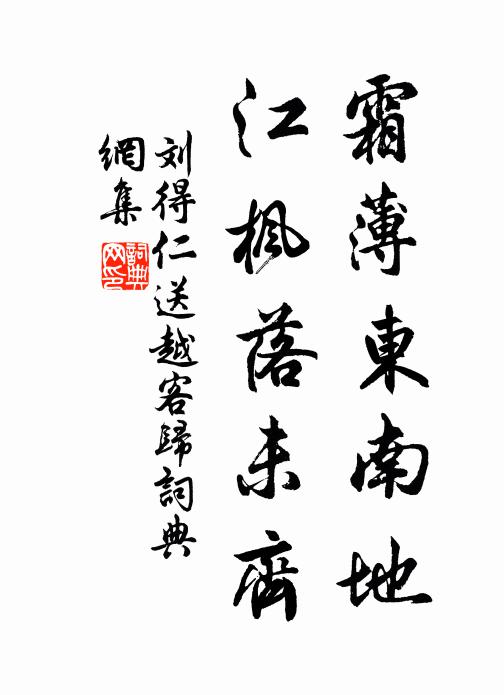 霜薄東南地
江楓落未齊
刘得仁送越客歸詞典
網集
詞典
网印